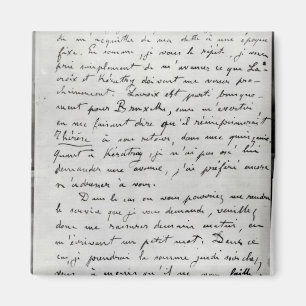 de m'acquitter de ma dette à une époque
fixe. En somme, je vous le répète, je vous
prie simplement de m'avancer ce que La-
croix et Kératry doivent me verser pro-
chainement. Lacroix est parti brusque-
ment pour Bruxelles, sans m'avertir
en me faisant dire qu'il réimprimerait
Thérèse à son retour, dans une quinzaine.
Quant à Kératry, je n'ai pas osé lui
demander une avance, j'ai préféré encore
m'adresser à vous.
Dans le cas où vous pourriez me rendre
le service que je vous demande, veuillez
donc me rassurer demain matin, en
m'écrivant un petit mot. Dans ce
cas, je prendrai la somme jeudi soir chez
vous, à moins qu'il ne vous